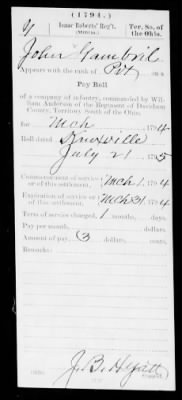 (1794.)
Y | Isaac Roberts' Reg't. | Ter. So. of
(MILITIA.) | the Ohio.
John Gambril
Appears with the rank of Pvt on a
Pay Roll
of a company of infantry, commanded by Wil-
liam Anderson of the Regiment of Davidson
County, Territory South of the Ohio,
for Mch, 1794
Roll dated Knoxville
July 21, 1795
Commencement of service or of this settlement, Mch 1, 1794
Expiration of service or of this settlement, Mch 31, 1794
Term of service charged, 1 months, days.
Pay per month, dollars, cents.
Amount of pay, 3 dollars, cents.
Remarks:
J. B. Hyatt
Copyist.